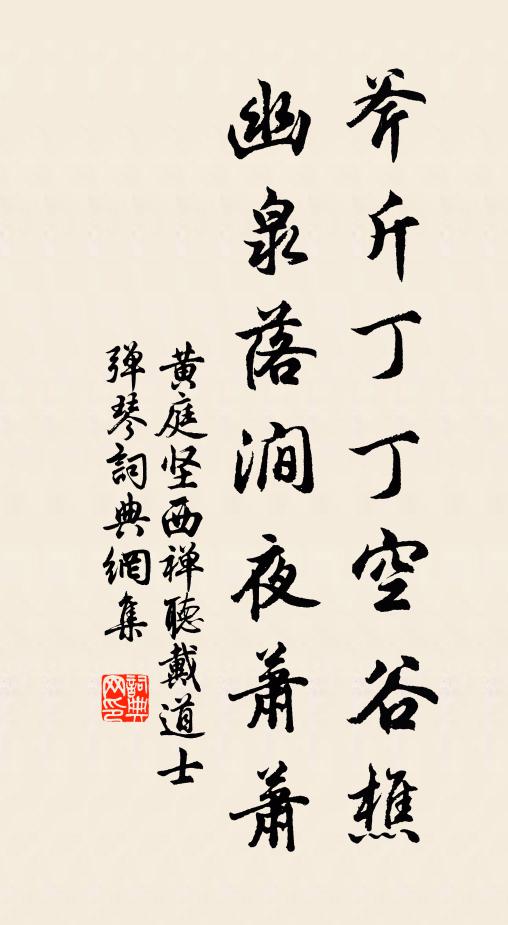 斧斤丁丁空谷樵
幽泉落涧夜萧萧
黄庭坚西禅聽戴道士
弹琴詞典網集
詞典网印